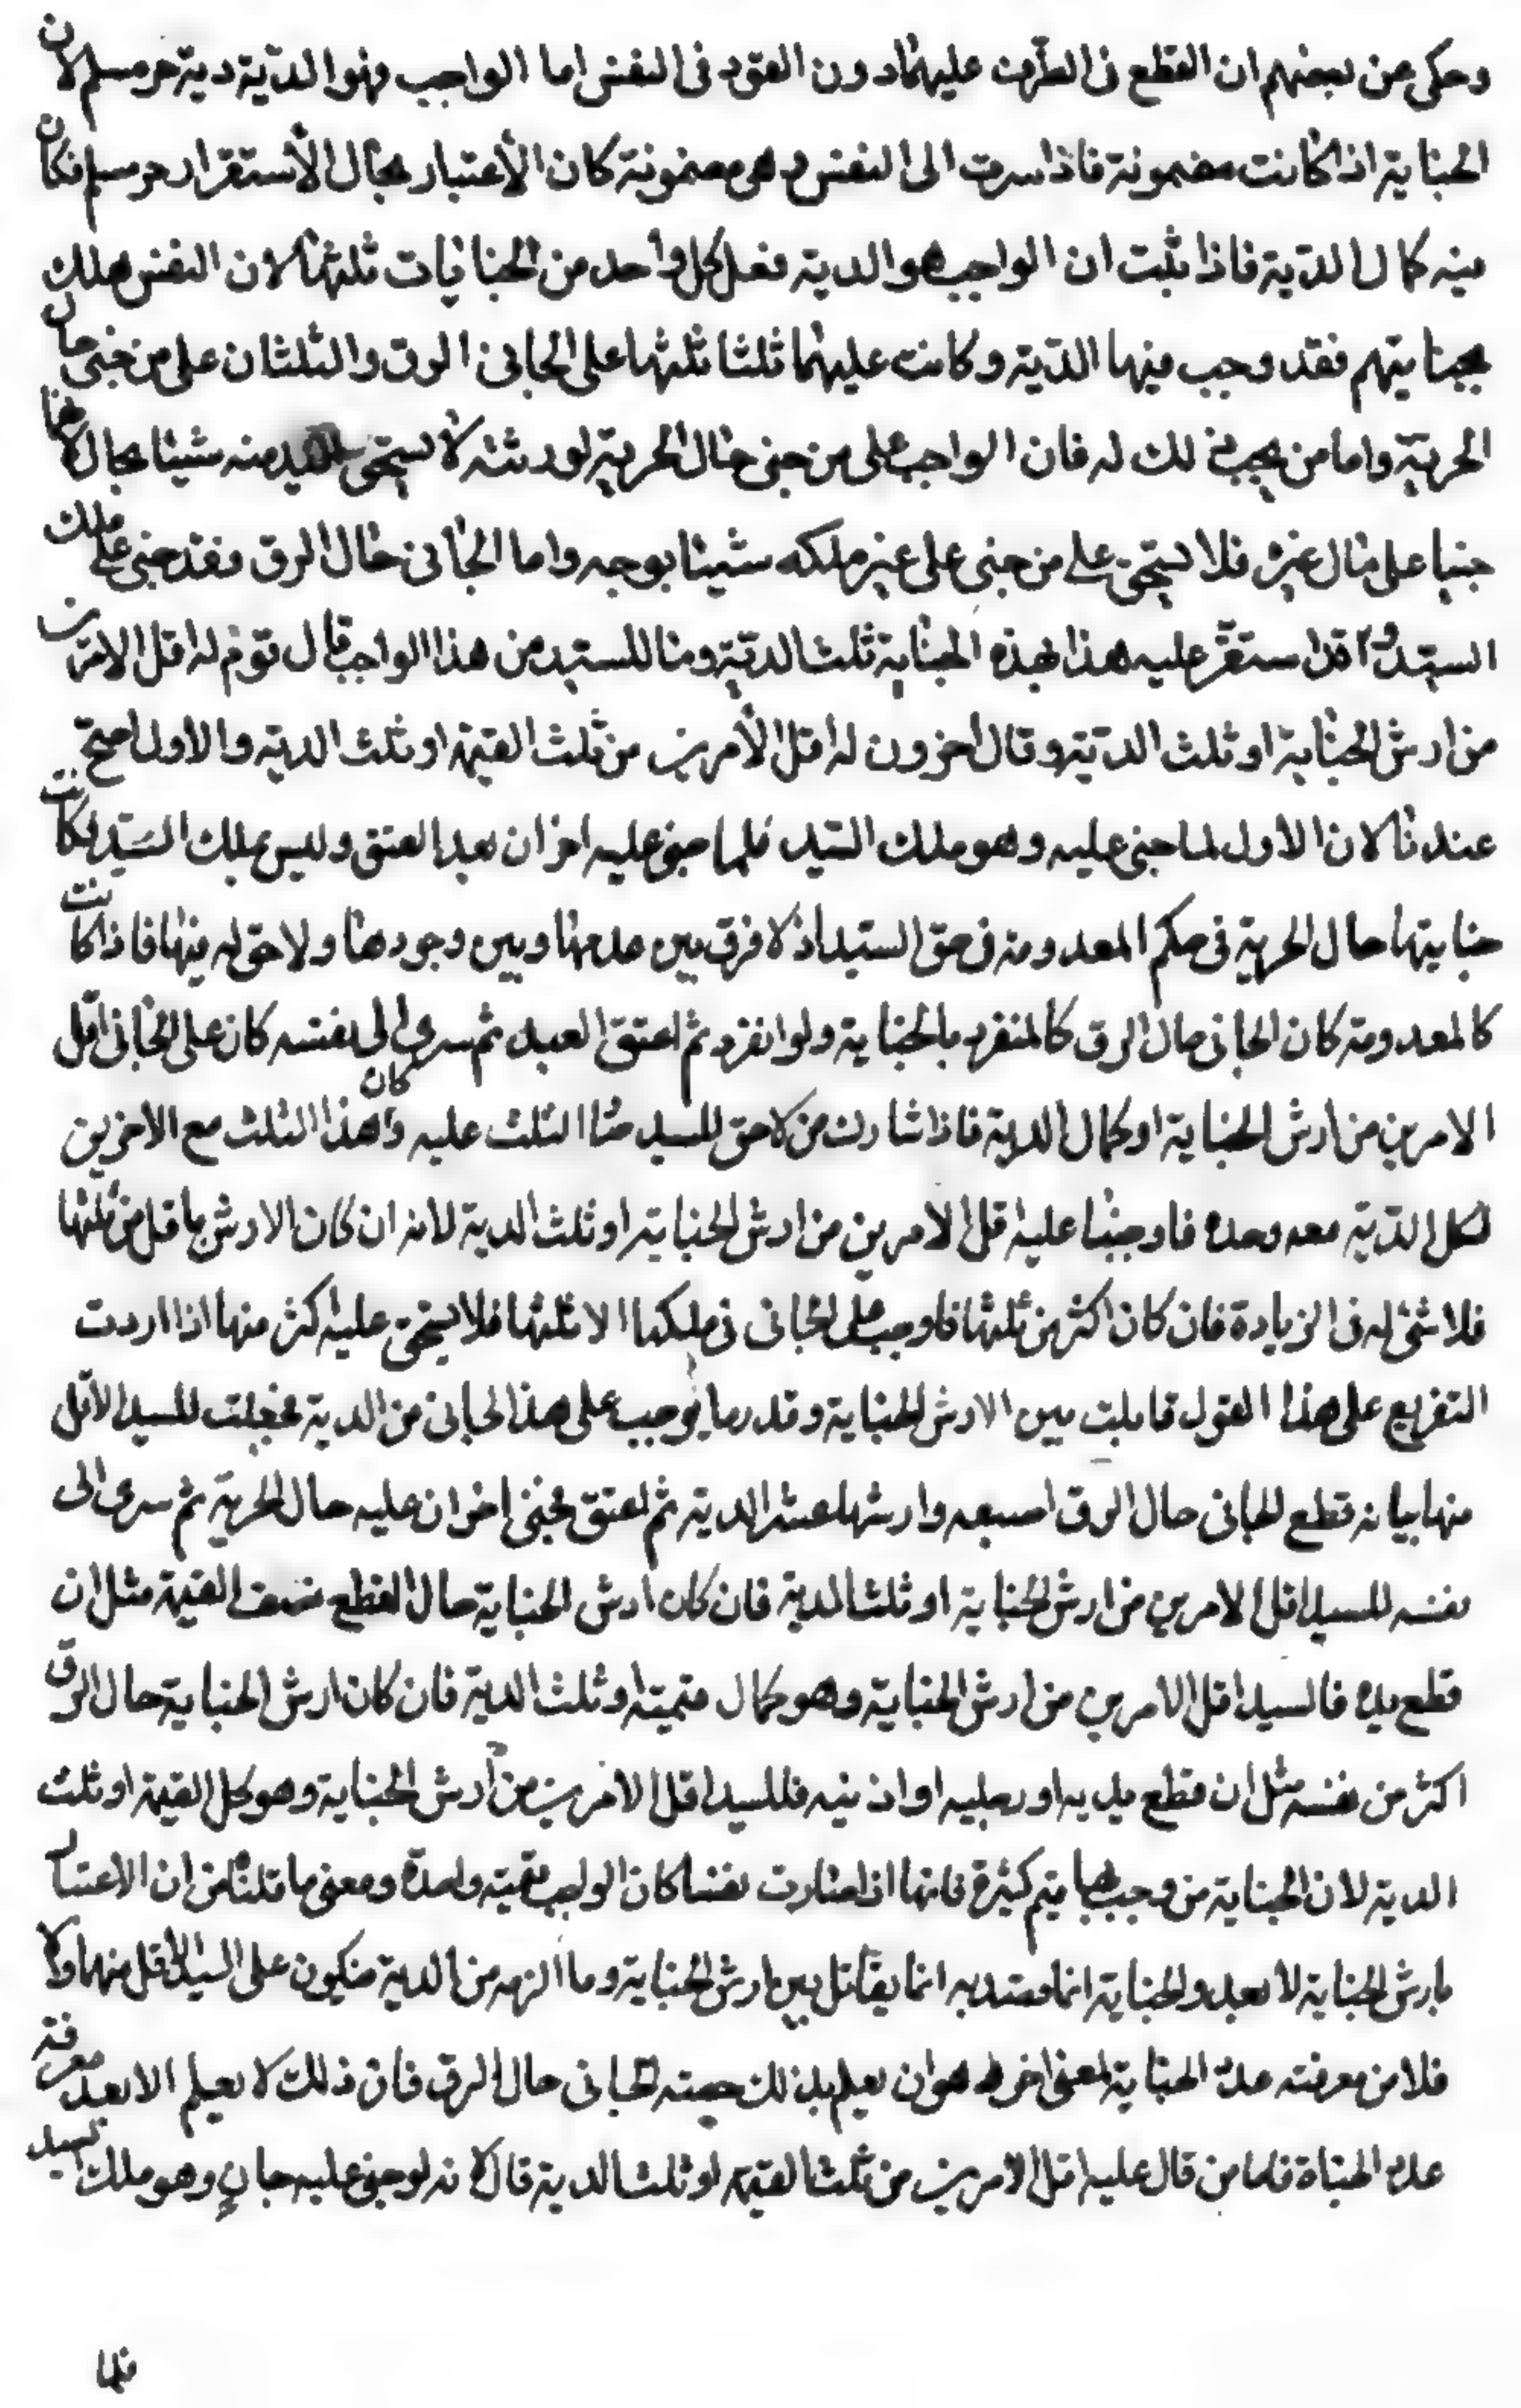 وحكى عن بعضهم ان القطع فى الطرف عليهما دون القود فى النفس اما الواجب فهو الدية دية حر مسلم لان
الجناية اذا كانت مضمونة فاذا سرت الى النفس و هى مضمونة كان الاعتبار بحال الأستقرار حر مسلم فكان
فيه كمال الدية فاذا ثبت ان الواجب هو الدية فعلى كل واحد من الجنايات ثلثها لان النفس هلك
بجنايتهم فقد وجب فيها الدية وكانت عليهما ثلثا ثلثها على الجانى فى الرق والثلثان على من جنى حال
الحرية واما من يجب ذلك له فان الواجب على من جنى حال الحرية لورثته لا يستحق السيد منه شيئا بحال لانهما
جنيا على مال غيره فلا يستحق على من جنى على غير ملكه شيئا بوجه واما الجانى حال الرق فقد جنى على ملك
السيد و قد استقر عليه هذا بهذه الجناية ثلث الدية وما للسيد من هذا الواجب قال قوم له اقل الامرين
من ارش الجناية او ثلث الدية وقال اخرون له اقل الأمرين من ثلث القيمة او ثلث الدية والاول اصح
عندنا لان الاول لما جنى عليه وهو ملك السيد فلما جنى عليه اخران بعد العتق وليس بملك السيد لكانت
جنايتها حال الحرية فى حكم المعدومة فى حق السيد اذ لا فرق بين عدمها وبين وجودها ولا حق له فيها فاذا كانت
كالمعدومة كان الجانى حال الرق كالمنفرد بالجناية ولو انفرد ثم اعتق العبد ثم سرى الى نفسه كان على الجانى اقل
الامرين من ارش الجناية او كمال الدية فاذا شارك من لا حق للسيد هذا الثلث عليه وكان هذا الثلث مع الاخرين
لكل الدية معه وحده فاوجبنا عليه اقل الأمرين من ارش الجناية او ثلث الدية لانه ان كان الارش ما قل من ثلثها
فلا شئ له فى الزيادة فان كان اكثر من ثلثها فاوجب على الجانى فى ملكها الا ثلثها فلا يستحق عليه اكثر منها اذا اردت
التفريع على هذا القول قابلت بين الارش الجناية وقدر ما يوجب على هذا الجانى من الدية فجعلت للسيد الأقل
منها بيانه قطع الجانى حال الرق اصبعه وارشها عشر الدية ثم اعتق فجنى اخران عليه حال الحرية ثم سرى الى
نفسه للسيد اقل الامرين من ارش الجناية او ثلث الدية فان كان ارش الجناية حال القطع نصف القيمة مثل ان
قطع يده فالسيد اقل الامرين من ارش الجناية وهو كمال قيمته او ثلث الدية فان كان ارش الجناية حال الرق
اكثر من نفسه مثل ان قطع يديه او رجليه او اذنيه فللسيد اقل الامرين من ارش الجناية وهو كل القيمة او ثلث
الدية لان الجناية من وجب بها قيم كثيرة فانها اذا صارت نفسا كان الواجب قيمته واحدة ومعنى ما قلناه من ان الاعتبار
بارش الجناية لا بعدد الجناية انما معتد به انما يقابل بين ارش الجناية وما الزمه من الدية فيكون على السيد الأقل منهما ولا
فلا من معرفته عدد الجناية لمعنى اخر له هو ان يعلم بذلك حصته الجانى حال الرق فان ذلك لا يعلم الا بعد معرفة
عدد الجناة فاما من قال عليه اقل الأمرين من ثلث القيمة او ثلث الدية قال لانه لو جنى عليه جانٍ وهو ملك السيد
فلما